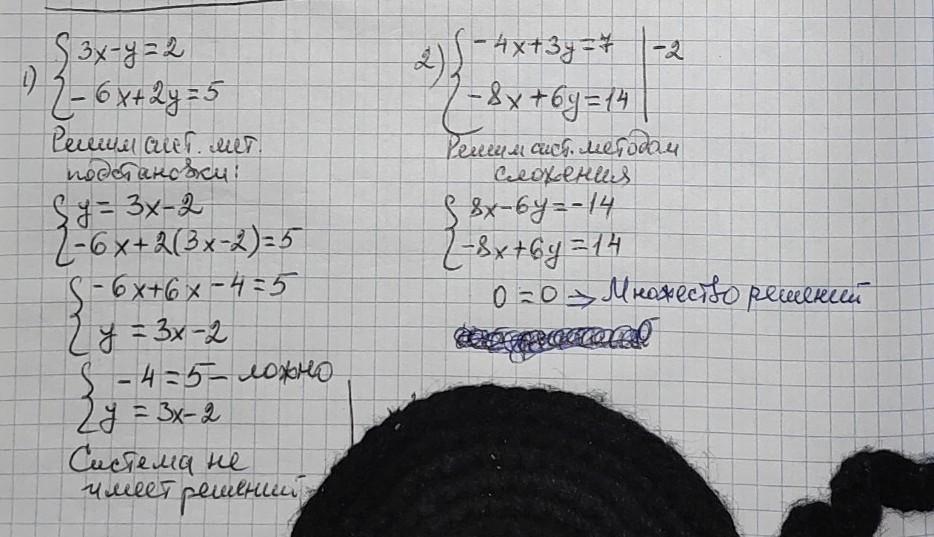 1) { 3x-y=2
-6x+2y=5
Решим сист. мет.
подстановки:
{ y= 3x-2
-6x+2(3x-2)=5
{ -6x+6x-4=5
y = 3x-2
{ -4=5- ложно
y = 3x-2
Система не
имеет решений
2) { -4x+3y=7 | -2
-8x+6y=14
Решим сист. методом
сложения
{ 8x-6y=-14
-8x+6y=14
0=0 ⇒ Множество решений